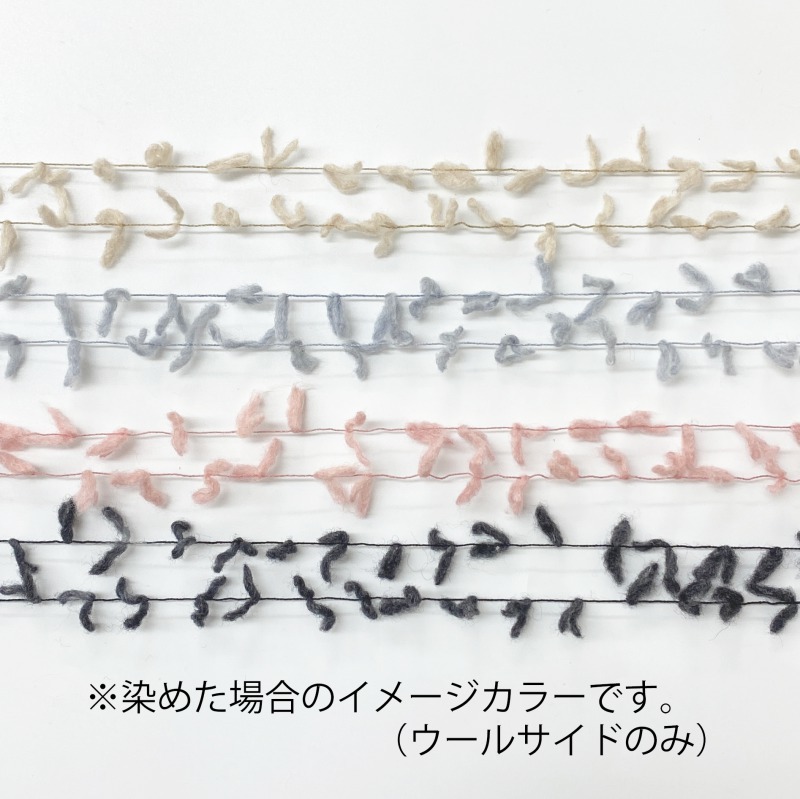 ※染めた場合のイメージカラーです。
（ウールサイドのみ）